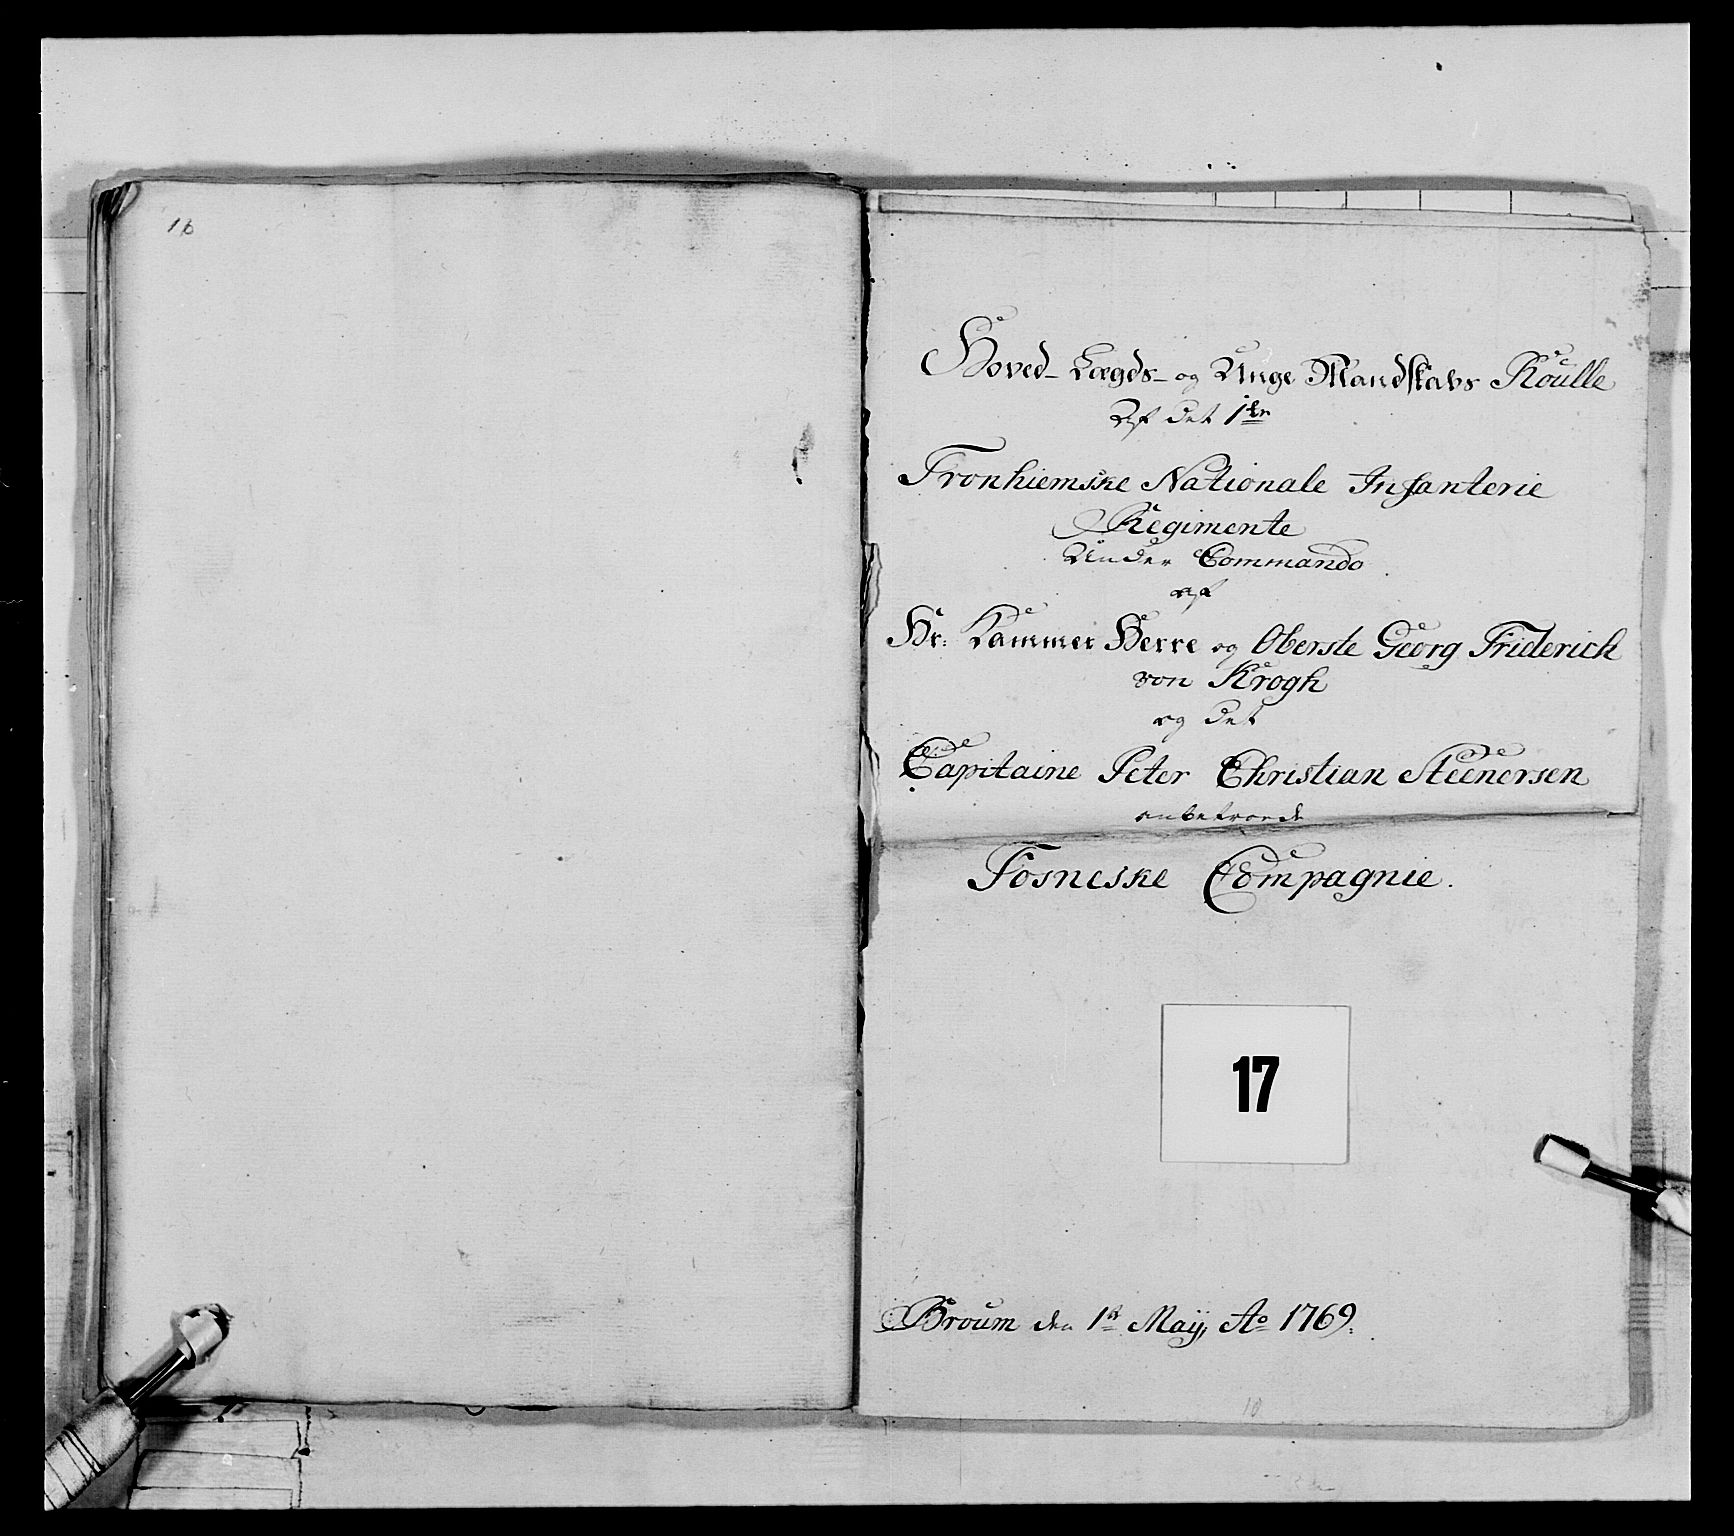 16
Hoved- Lægds- og Unge Mandskabs Roulle
Af det 1ste
Tronhiemske Nationale Infanterie
Regimente
Under Commando
af
Hr: Kammer Herre og Oberste Georg Friderich
von Krogh
og det
Capitaine Peter Christian Steenersen
anbetroede
Fosneske Compagnie.
17
Broum den 1st May, Ao 1769.
10